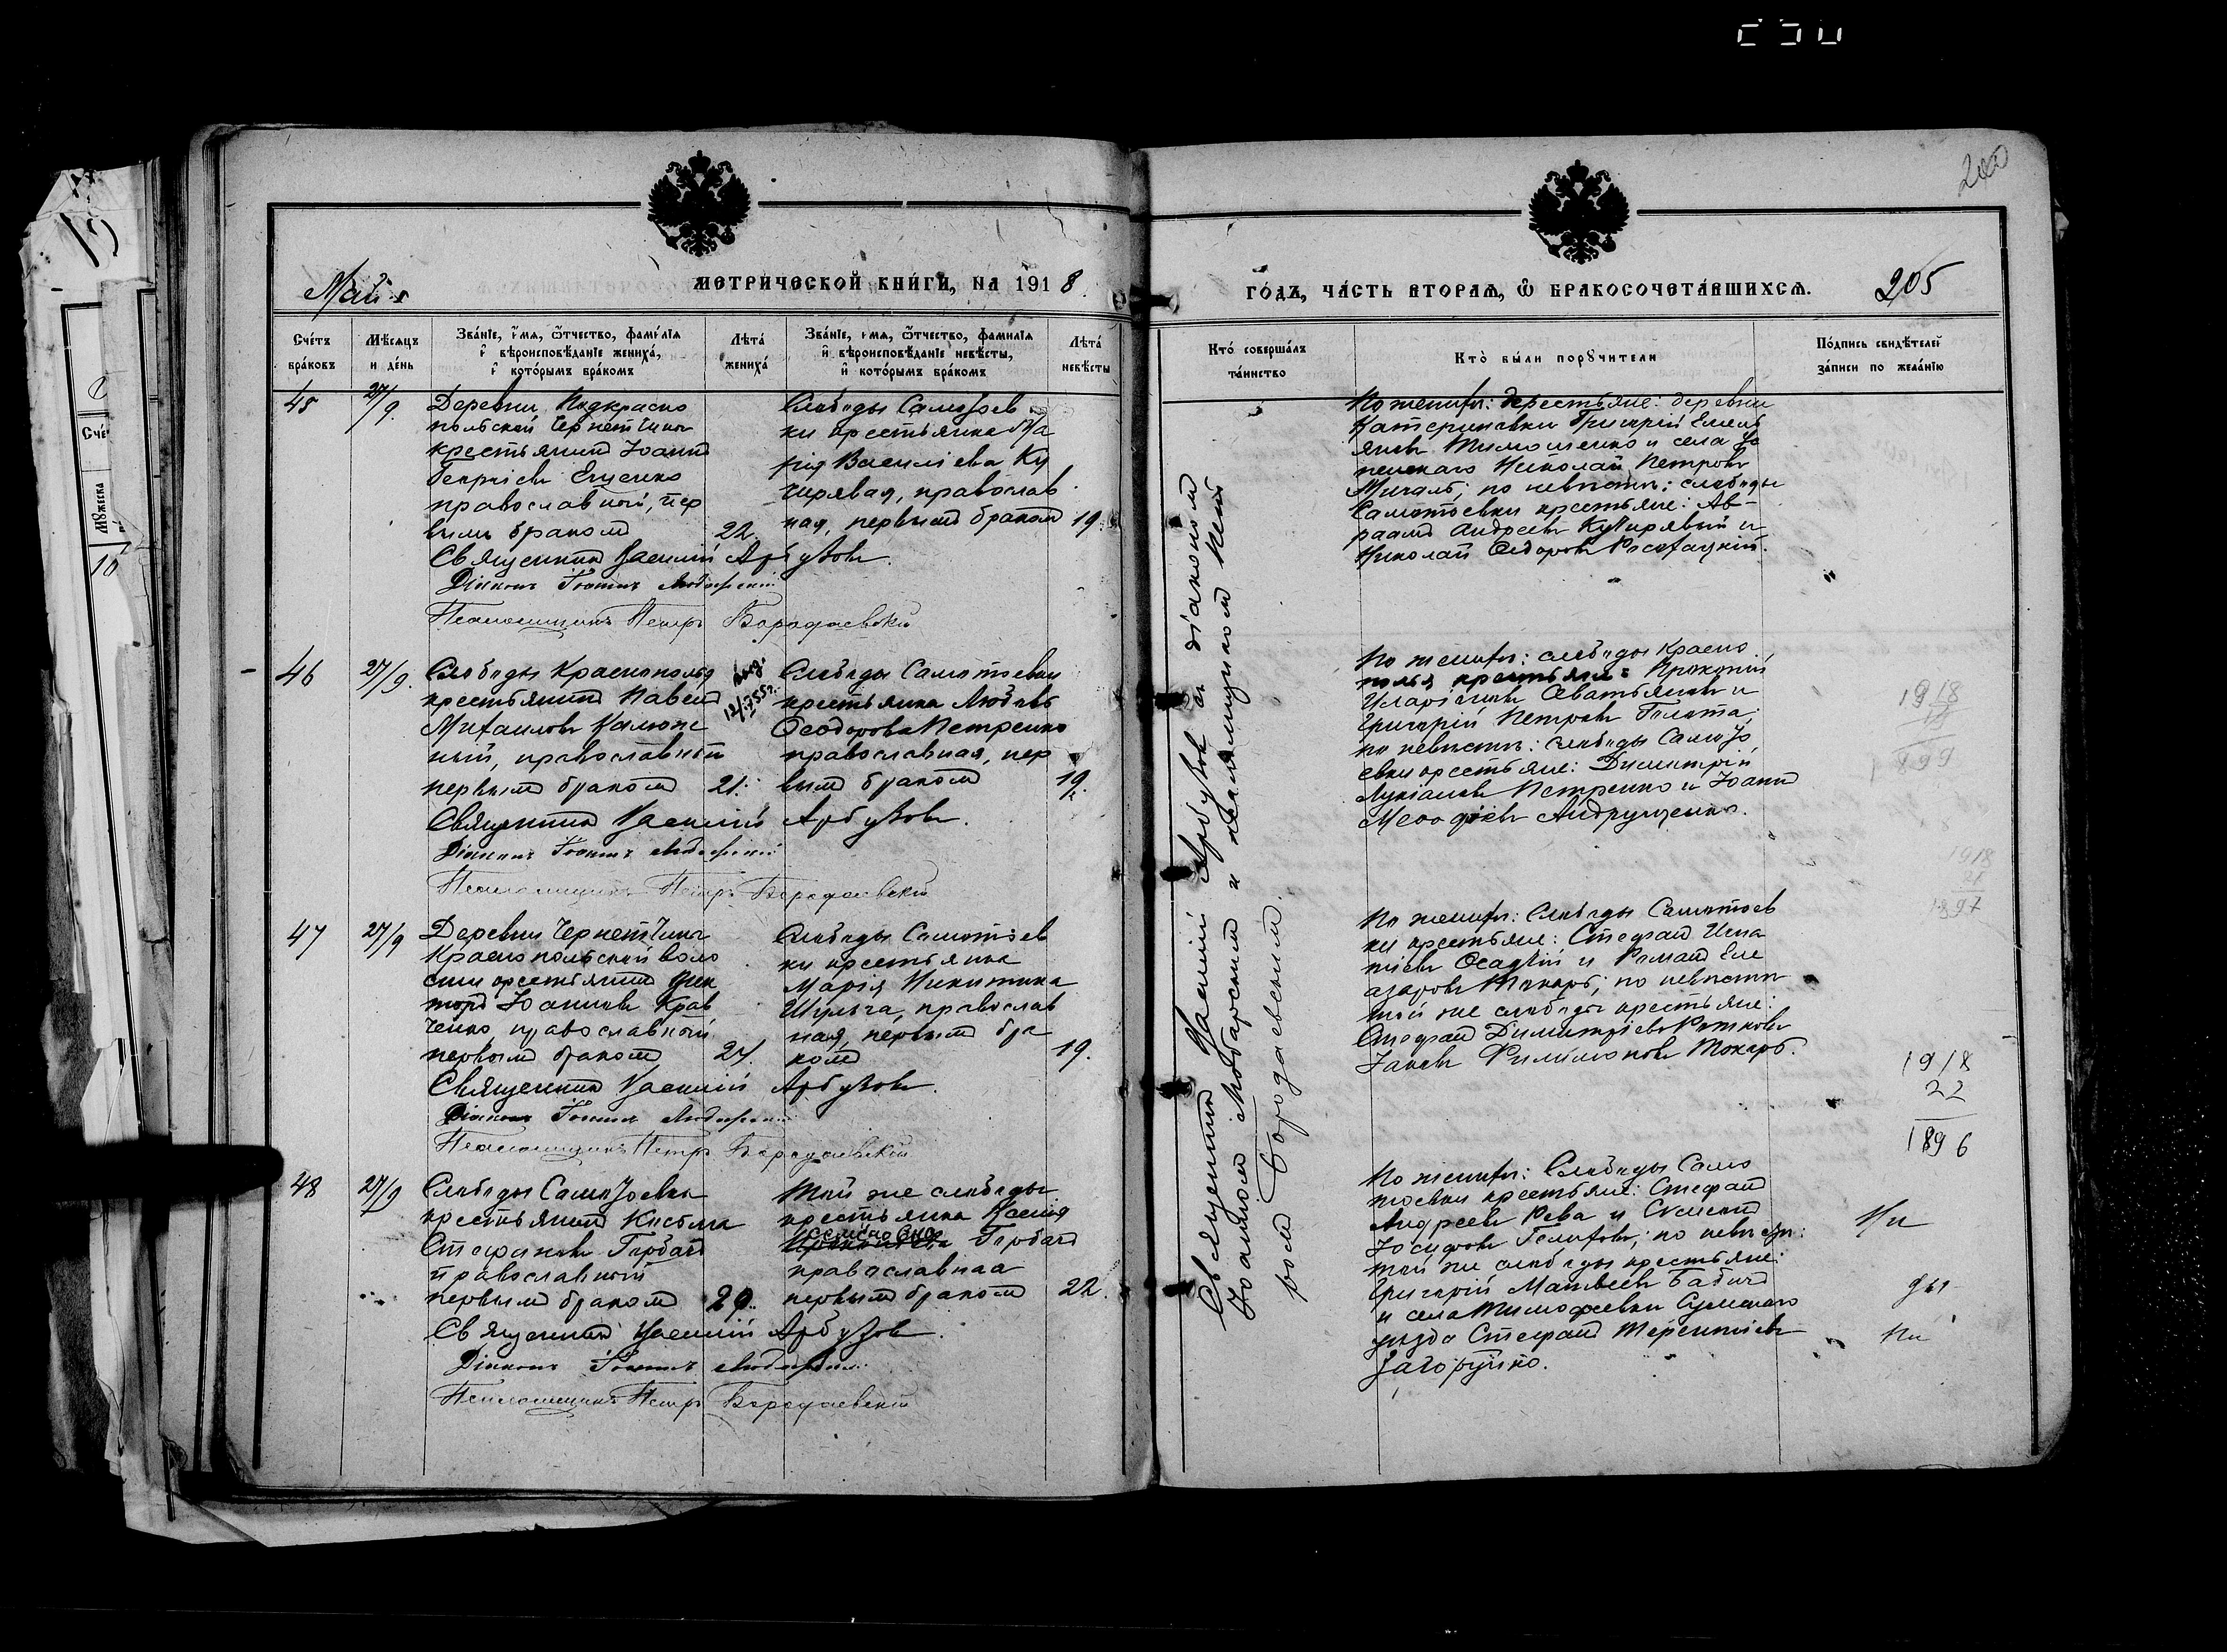 200
Май
МЕТРИЧЕСКОЙ КНИГИ, НА 1918
ГОДЪ, ЧАСТЬ ВТОРАЯ, Ѡ БРАКОСОЧЕТАВШИХСЯ.
205
Счетъ браковъ
Мѣсяцъ и день
Званіе, имя, ѿтчество, фамилія
и вѣроисповѣданіе жениха,
и которымъ бракомъ
Лѣта жениха
Званіе, имя, ѿтчество, фамилія
и вѣроисповѣданіе невѣсты,
и которымъ бракомъ
Лѣта невѣсты
Кто совершалъ таинство
Кто были порꙋчители
Подпись свидѣтелей записи по желанію
45
27/9.
Деревни Подкрасно
польской Чернетчины
крестьянинъ Іоаннъ
Георгіевъ Ещенко
православный, пер
вымъ бракомъ
22.
Слободы Самотоев
ки крестьянка Ма
рія Василіева Ку
чирявая, православ
ная, первымъ бракомъ
19.
Священникъ Василій Арбузовъ.
Діаконъ Іоаннъ
Псаломщикъ Петръ Бородаевскій
По женихѣ: крестьяне: деревни
Катериновки Григорій Емель
яновъ Тимошенко и села
Николай Петровъ
по невѣстѣ: слободы
Самотоевки крестьяне: Ав-
раамъ Андреевъ Кучирявый и
Николай Ѳедоровъ
46
27/9.
Слободы Краснополья
крестьянинъ Павелъ
Михаиловъ Калюж
ный, православный
первымъ бракомъ
21.
Слободы Самотоевки
крестьянка Любовь
Ѳеодорова Петренко
православная, пер
вымъ бракомъ
19.
Священникъ Василій Арбузовъ.
Діаконъ Іоаннъ
Псаломщикъ Петръ Бородаевскій
По женихѣ: слободы Красно
полья крестьяне: Прокопій
Иларіоновъ и
Григорій Петровъ
по невѣстѣ: слободы Самото
евки крестьяне: Димитрій
Лукіановъ Петренко и Іоаннъ
Меѳодіевъ Андрущенко.
1918
19
1899
47
27/9
Деревни Чернетчины
Краснопольской воло
сти крестьянинъ Вик
торъ Іоанновъ Крав
ченко, православный
первымъ бракомъ
21.
Слободы Самотоев
ки крестьянка
Марія Никитина
Шульга, православ
ная, первымъ бра
комъ
19.
Священникъ Василій Арбузовъ.
Діаконъ Іоаннъ
Псаломщикъ Петръ Бородаевскій
По женихѣ: Слободы Самотоев
ки крестьяне: Стефанъ Игна
тіевъ Осадчій и Романъ Еле
азаровъ Токарь; по невѣстѣ
той же слободы крестьяне:
Стефанъ Димитріевъ
Іаковъ Филимоновъ Токарь.
1918
21
1897
1918
22
1896
48
27/9
Слободы Самотоевки
крестьянинъ Косьма
Стефановъ Горбачъ
православный
первымъ бракомъ
20.
Той же слободы
крестьянка Ксенія
Горбачъ
православная
первымъ бракомъ
22.
Священникъ Василій Арбузовъ.
Діаконъ Іоаннъ
Псаломщикъ Петръ Бородаевскій
По женихѣ: Слободы Само
тоевки крестьяне: Стефанъ
Андреевъ Рева и
Іосифовъ по невѣстѣ:
той же слободы крестьяне:
Григорій Матвеевъ Бабичъ
и села Тимофеевки Сумскаго
уѣзда Стефанъ Терентіевъ
Загоруйко.
Священникъ Василій Арбузовъ съ діакономъ
Іоанномъ Любарскимъ и псаломщикомъ Пет
ромъ Бородаевскимъ.